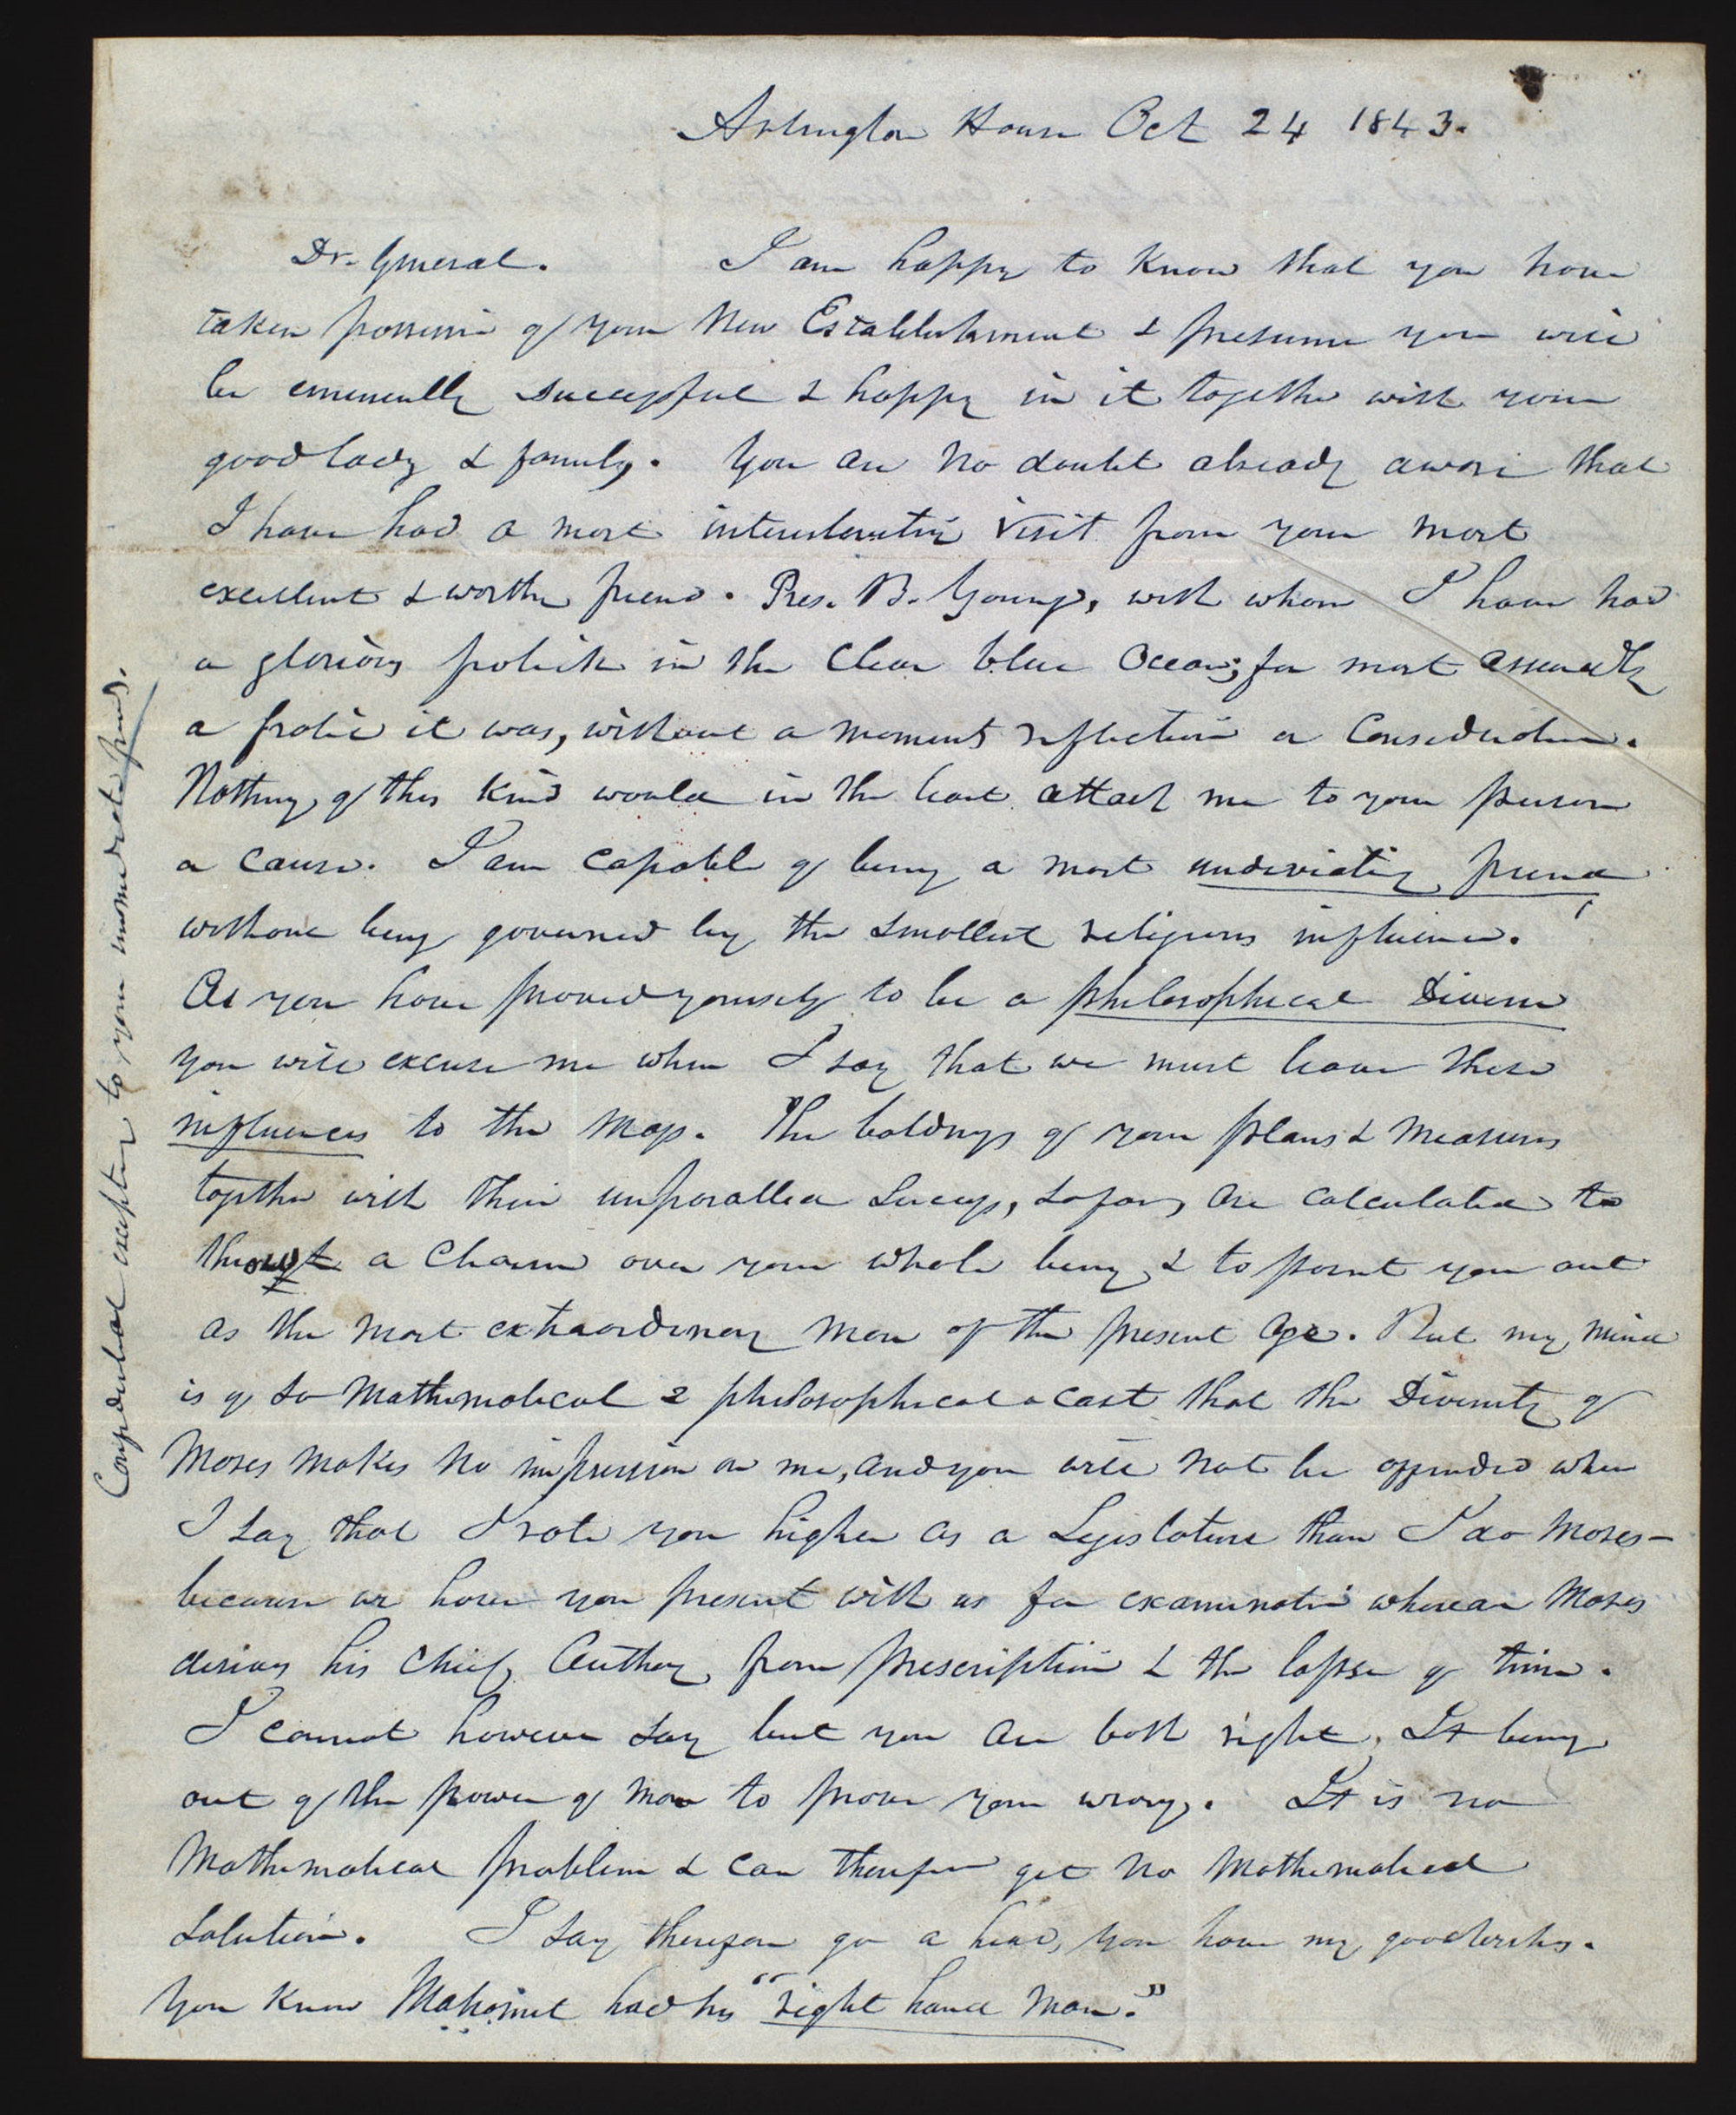 Arlington House Oct 24 1843.
Dr. General. I am happy to know that you have
taken possession of your New Establishment & presume you will
be eminently successful & happy in it together with your
good lady & family. You are no doubt already aware that
I have had a most interesting visit from your most
excellent & worthy friend. Pres. B. Young, with whom I have had
a glorious frolick in the clear blue Ocean; for most assuredly
a frolic it was, without a moments reflection or Consideration.
Nothing of this kind would in the least attach me to your person
or cause. I am capable of being a most undeviating friend
without being governed by the smallest religious influence.
As you have proved yourself to be a philosophical Divine
you will excuse me when I say that we must leave these
influences to the Mass. The boldness of your plans & Measures
together with their unparalled success, so far, are calculated to
throw a Charm over your whole being & to point you out
as the most extraordinary man of the present Age. But my mind
is of so Mathematical & philosophical a cast that the Divinity of
Moses makes No impression on me, and you will not be offended when
I say that I rate you higher as a Legislature than I do Moses—
because we have you present with us for examination whereas Moses
derives his chief Authory from prescription & the lapse of time.
I cannot however say but you are both right, It being
out of the power of man to prove you wrong. It is no
Mathematical problem & can therefore get No Mathematical
Solution. I say therefore go a head, you have my good wishes.
You know Mahomet had his "right hand Man."
Confidential excepting to your immediate friends.